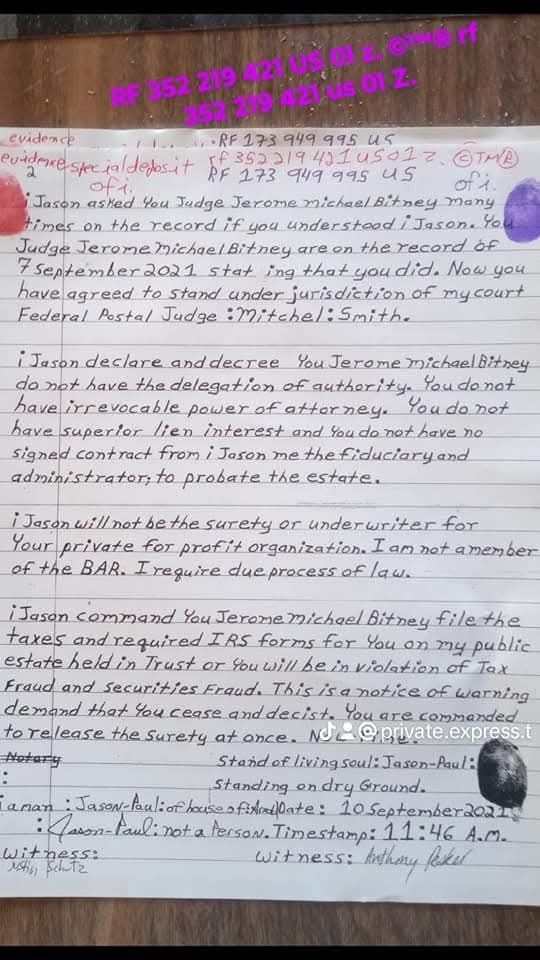 RF 352 219 421 US 01 z. ©™® rf
352 219 421 us 01 Z.
evidence RF 173 949 995 US
evidence special deposit rf 352 219 421 us 01 z. ©TM®
2 of i. RF 173 949 995 US of i.
i Jason asked You Judge Jerome michael Bitney many
times on the record if you understood i Jason. You
Judge Jerome Michael Bitney are on the record of
7 September 2021 stat ing that you did. Now you
have agreed to stand under jurisdiction of my court
Federal Postal Judge :Mitchel:Smith.
i Jason declare and decree You Jerome michael Bitney
do not have the delegation of authority. You do not
have irrevocable power of attorney. You do not
have superior lien interest and You do not have no
signed contract from i Jason me the fiduciary and
administrator; to probate the estate.
i Jason will not be the surety or underwriter for
Your private for profit organization. I am not a member
of the BAR. I require due process of law.
i Jason command You Jerome Michael Bitney file the
taxes and required IRS forms for You on my public
estate held in Trust or You will be in violation of Tax
Fraud and securities Fraud. This is a notice of warning
demand that You cease and decist. You are commanded
to release the surety at once. @private.express.t
Notary Stand of living soul: Jason-Paul:
: Standing on dry Ground.
i a man : Jason-Paul: of house of: Date: 10 September 2021
: Jason-Paul: not a Person. Timestamp: 11:46 A.M.
witness: witness: Anthony
Schutz